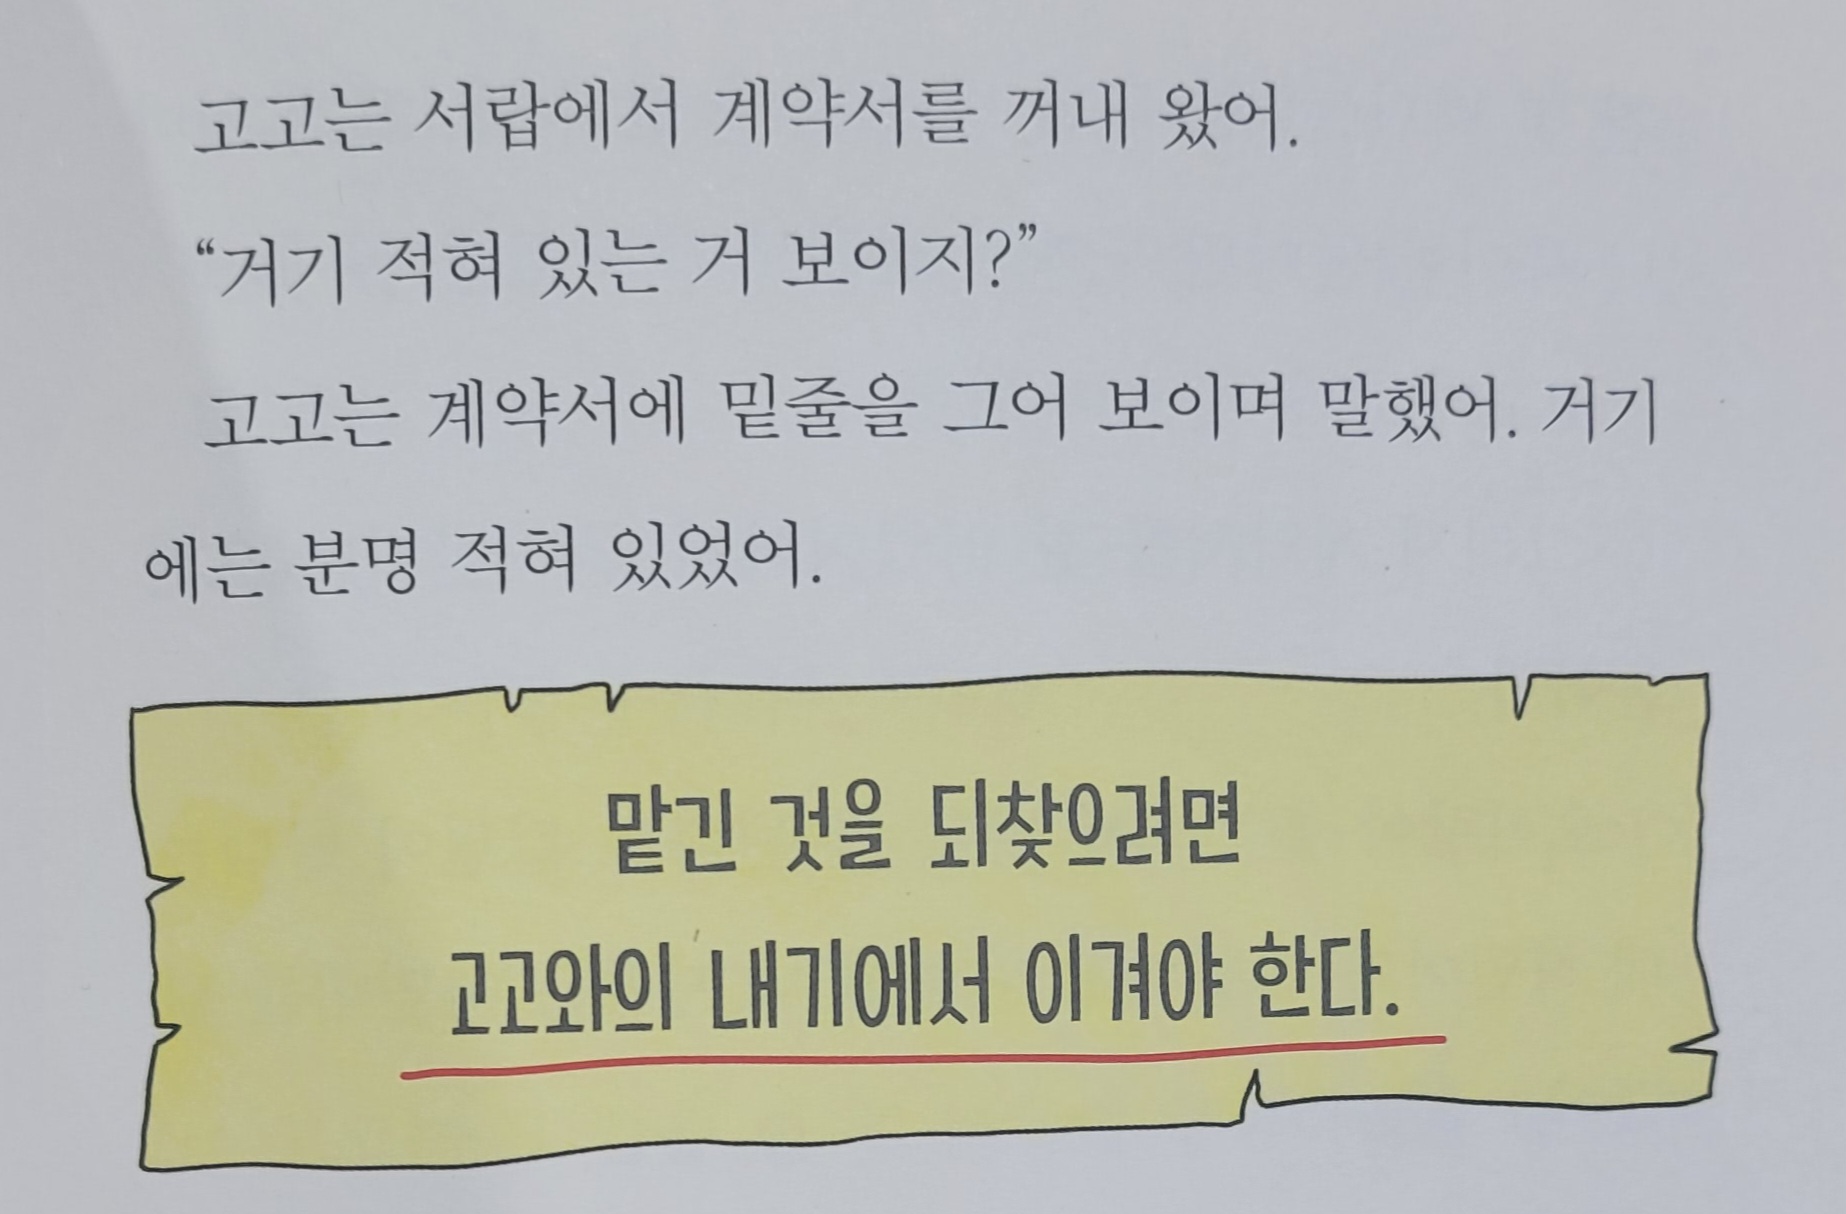 고고는 서랍에서 계약서를 꺼내 왔어.
“거기 적혀 있는 거 보이지?”
고고는 계약서에 밑줄을 그어 보이며 말했어. 거기
에는 분명 적혀 있었어.
맡긴 것을 되찾으려면
고고와의 내기에서 이겨야 한다.